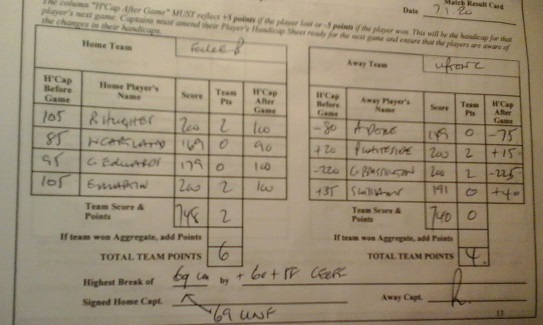 The column "H'Cap After Game" MUST reflect +5 points if the player lost or -5 points if the player won. This will be the handicap for that
player's next game. Captains must amend their Player's Handicap Sheet ready for the next game and ensure that the players are aware of
the changes in their handicaps.
Match Result Card
Date 7.1.20
Home Team
Away Team
H'Cap Before Game Home Player's Name Score Team Pts H'Cap After Game
105 R HUGHES 200 2 100
85 169 0 90
95 G EDWARDS 179 0 100
105 E MARTIN 200 2 100
Team Score & Points 748 2
If team won Aggregate, add Points
TOTAL TEAM POINTS 6
H'Cap Before Game Away Player's Name Score Team Pts H'Cap After Game
-80 189 0 -75
+20 P WHITESIDE 200 2 +15
-220 200 2 -225
+35 191 0 +40
Team Score & Points 740 0
If team won Aggregate, add Points
TOTAL TEAM POINTS 4
Highest Break of 69 by
Signed Home Capt.
Away Capt.
69 UNF
13